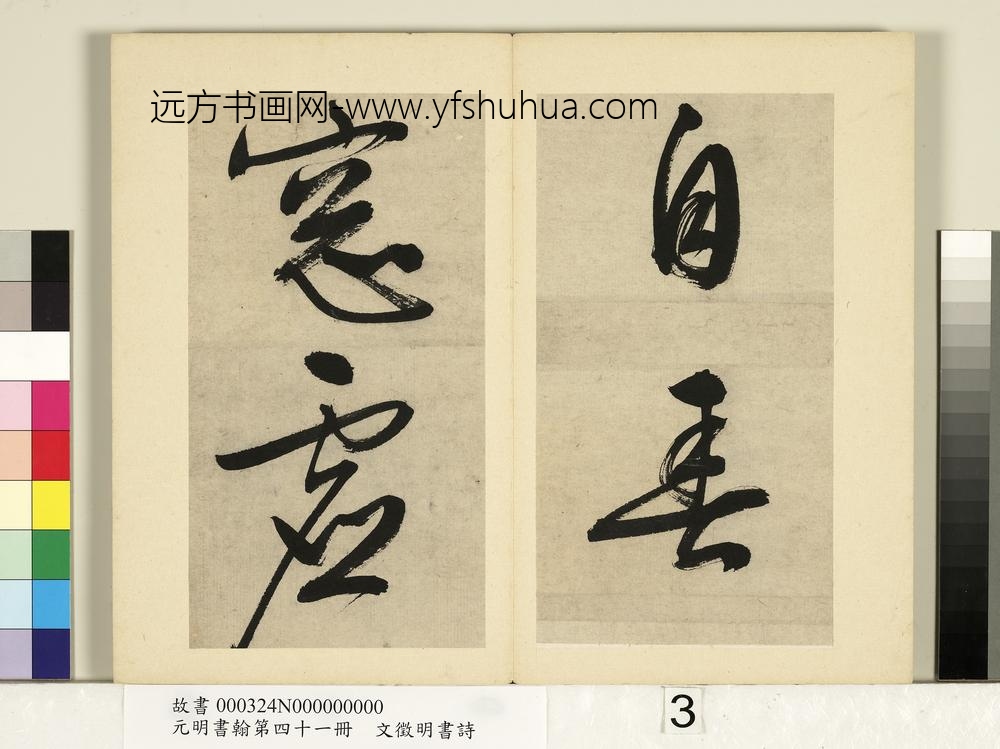 远方书画网-www.yfshuhua.com
自垂
窓虛
故書 000324N000000000
元明書翰第四十一冊 文徵明書詩
3